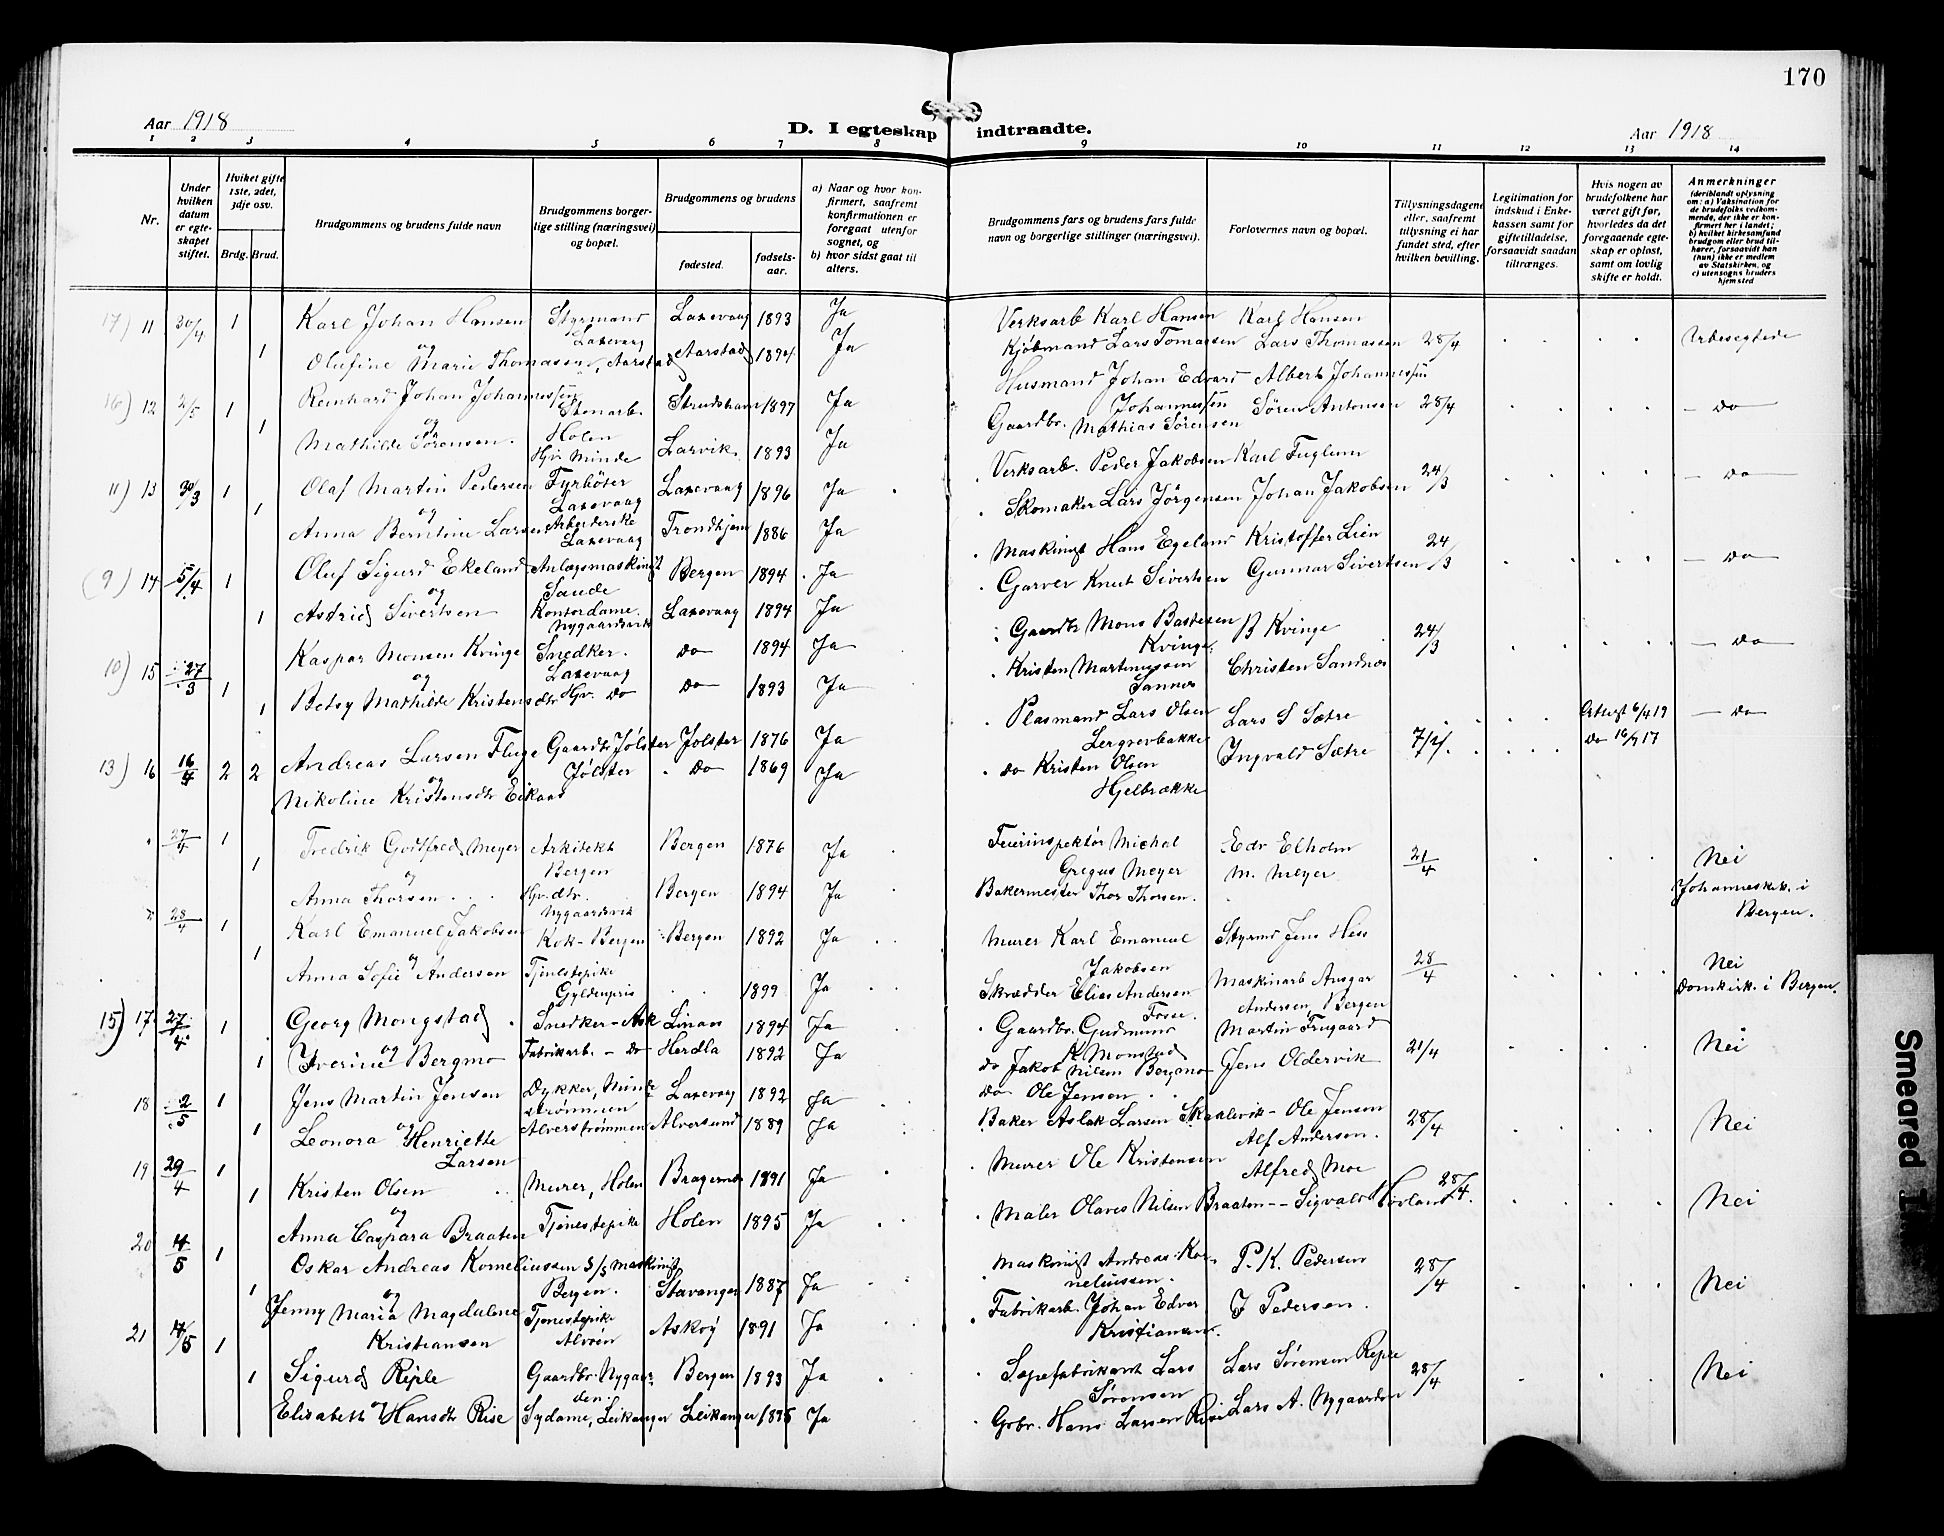 170
Aar 1918
D. I egteskap indtraadte.
Aar 1918
1 2 3 4 5 6 7 8 9 10 11 12 13 14
Nr.
Under hvilken datum er egteskapet stiftet.
Hviket gifte 1ste, 2det, 3dje osv.
Brdg. Brud.
Brudgommens og brudens fulde navn
Brudgommens borgerlige stilling (næringsvei) og bopæl.
Brudgommens og brudens
fødested.
fødselsaar.
a) Naar og hvor konfirmert, saafremt konfirmationen er foregaat utenfor sognet, og
b) hvor sidst gaat til alters.
Brudgommens fars og brudens fars fulde navn og borgerlige stillinger (næringsvei).
Forlovernes navn og bopæl.
Tillysningsdagene eller, saafremt tillysning ei har fundet sted, efter hvilken bevilling.
Legitimation for indskud i Enkekassen samt for giftetilladelse, forsaavidt saadan tiltrænges.
Hvis nogen av brudefolkene har været gift før, hvorledes da det foregaaende egteskap er opløst, samt om lovlig skifte er holdt.
Anmerkninger
(deriblandt oplysning om: a) Vaksination for de brudefolks vedkommende, der ikke er konfirmert her i landet; b) hvilket kirkesamfund brudgom eller brud tilhører, forsaavidt han (hun) ikke er medlem av Statskirken, og c) utensogns bruders hjemsted
17) 11 30/4 1 Karl Johan Hansen Styrmand Laxevaag Laxevaag 1893 Ja Verksarb Karl Hansen Karl Hansen
og
1 Olufine Marie Thomassen, Aarstad Aarstad 1894 Ja Kjøbmand Lars Tomassen Lars Thomassen 28/4
16) 12 2/5 1 Reinhard Johan Johannessen Stenarb. Holen Strudsham 1897 Ja Husmand Johan Edvard Johannessen Albert Johannessen
og
1 Mathilde Sørensen. Hjv. Minde Larvik 1893 Ja Gaardbr. Mathias Sørensen Søren Antonsen 28/4 — do
11) 13 30/3 1 Olaf Martin Pedersen Fyrbøter Laxevaag Laxevaag 1896 Ja Verksarb. Peder Jakobsen Karl Fuglum
og
1 Anna Berntine Larsen Arbeiderske Laxevaag Trondhjem 1886 Ja Skomaker Lars Jørgensen Johan Jakobsen 24/3 — do
(9) 14 5/4 1 Oluf Sigurd Ekeland Anlægsmaskinist Sande Bergen 1894 Ja Maskinist Hans Egeland Kristoffer Lien
og
1 Astrid Sivertsen Kontordame. Nygaardsvik Laxevaag 1894 Ja Garver Knut Sivertsen Gunnar Sivertsen 24/3 — do
10) 15 27/3 1 Kaspar Monsen Kvinge Snedker. Laxevaag do 1894 Ja Gaardbr Mons Bastesen Kvinge. B Kvinge
og
1 Betsy Mathilde Kristensdtr Hjv. do do 1893 Ja Kristen Martinussen Sannes Christen Sandnes 24/3 — do
13) 16 16/4 2 2 Andreas Larsen Fluge Gaardbr Jølster Jølster 1876 Ja Plasmand Lars Olsen Lars S Sætre 6/4 19 — do
og
Nikoline Kristensdtr Eikaas Jølster do 1869 Ja do Kristen Olsen Ingvald Sætre do
27/4 1 Fredrik Gottfred Meyer Arkitekt Bergen Bergen 1876 Ja Feierinspektør Michal Gregus Meyer Edv Elholm
og
1 Anna Thorsen Hjv. dtr. Nygaardsvik Bergen 1894 Ja Bakermester Thor Thorsen. M. Meyer 21/4 Nei
Johanneskirk. i Bergen.
28/4 1 Karl Emanuel Jakobsen Kok - Bergen Bergen 1892 Ja Murer Karl Emanuel Jakobsen Styrmd Jens Hiis
og
1 Anna Sofie Andersen Tjenestepike Gyldenpris 1899 Ja Skrædder Elias Andersen Maskinarb Ansgar Andersen, Bergen 28/4 Nei
Domkirk. i Bergen.
15) 17 27/4 1 Georg Mongstad Snedker - Ask Linaas 1894 Ja Gaardbr. Gudmund K Monstad Martin Frugaard
og
1 Iverine Bergmo Fabrikarb. - do Herdla 1892 Ja do Jakob Nilsen Bergmo Jens Oldervik 21/4 Nei
18 2/5 1 Jens Martin Jensen Dykker, Minde Laxevaag 1892 Ja do Ole Jensen Ole Jensen
og
1 Leonora Henriette Larsen Alverstrømmen Alversund 1889 Ja Baker Aslak Larsen Skaalevik - Alf Andersen. 28/4 Nei
19 29/4 1 Kristen Olsen Murer, Holen Bragernes 1891 Ja Murer Ole Kristensen Alfred Moe
og
1 Anna Caspara Braaten Tjenestepike Holen 1895 Ja Maler Olaves Nilsen Braaten -- Sigvald Hovland 28/4. Nei
20 4/5 1 Oskar Andreas Korneliussen S/S Maskinist Bergen. Stavanger 1887 Ja Maskinist Andreas Korneliussen. P. K. Pedersen
og
1 Jenny Maria Magdalene Kristiansen Tjenestepike Alvøen Askøy 1891 Ja Fabrikarb. Johan Edvar Kristiansen. J Pedersen. 28/4 Nei
21 4/5 1 Sigurd Riple Gaardbr. Nygaarden Bergen 1893 Ja Sæpefabrikant Lars Sørensen Lars Sørensen Riple
og
1 Elisabeth Hansdtr Rise Sydame, Leikanger Leikanger 1895 Ja Grbr. Hans Larsen Rise Lars A. Nygaarden 28/4 Nei
Smeared